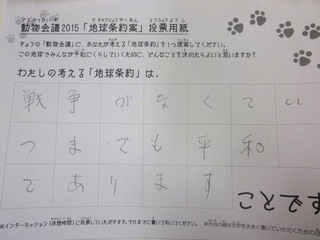 動物会議2015「地球条約案」投票用紙
きょうの「動物会議」に、あなたが考える「地球条約」を1つ提案してください。
この地球でみんなが平和にくらしていくために、どんなことを決めたらよいと思いますか?
わたしの考える「地球条約」は、
戦争がなくてい
つまでも平和
であります
すとこ
※インターミッション(休憩時間)に投票していただきます。それまでに書いておいてください。